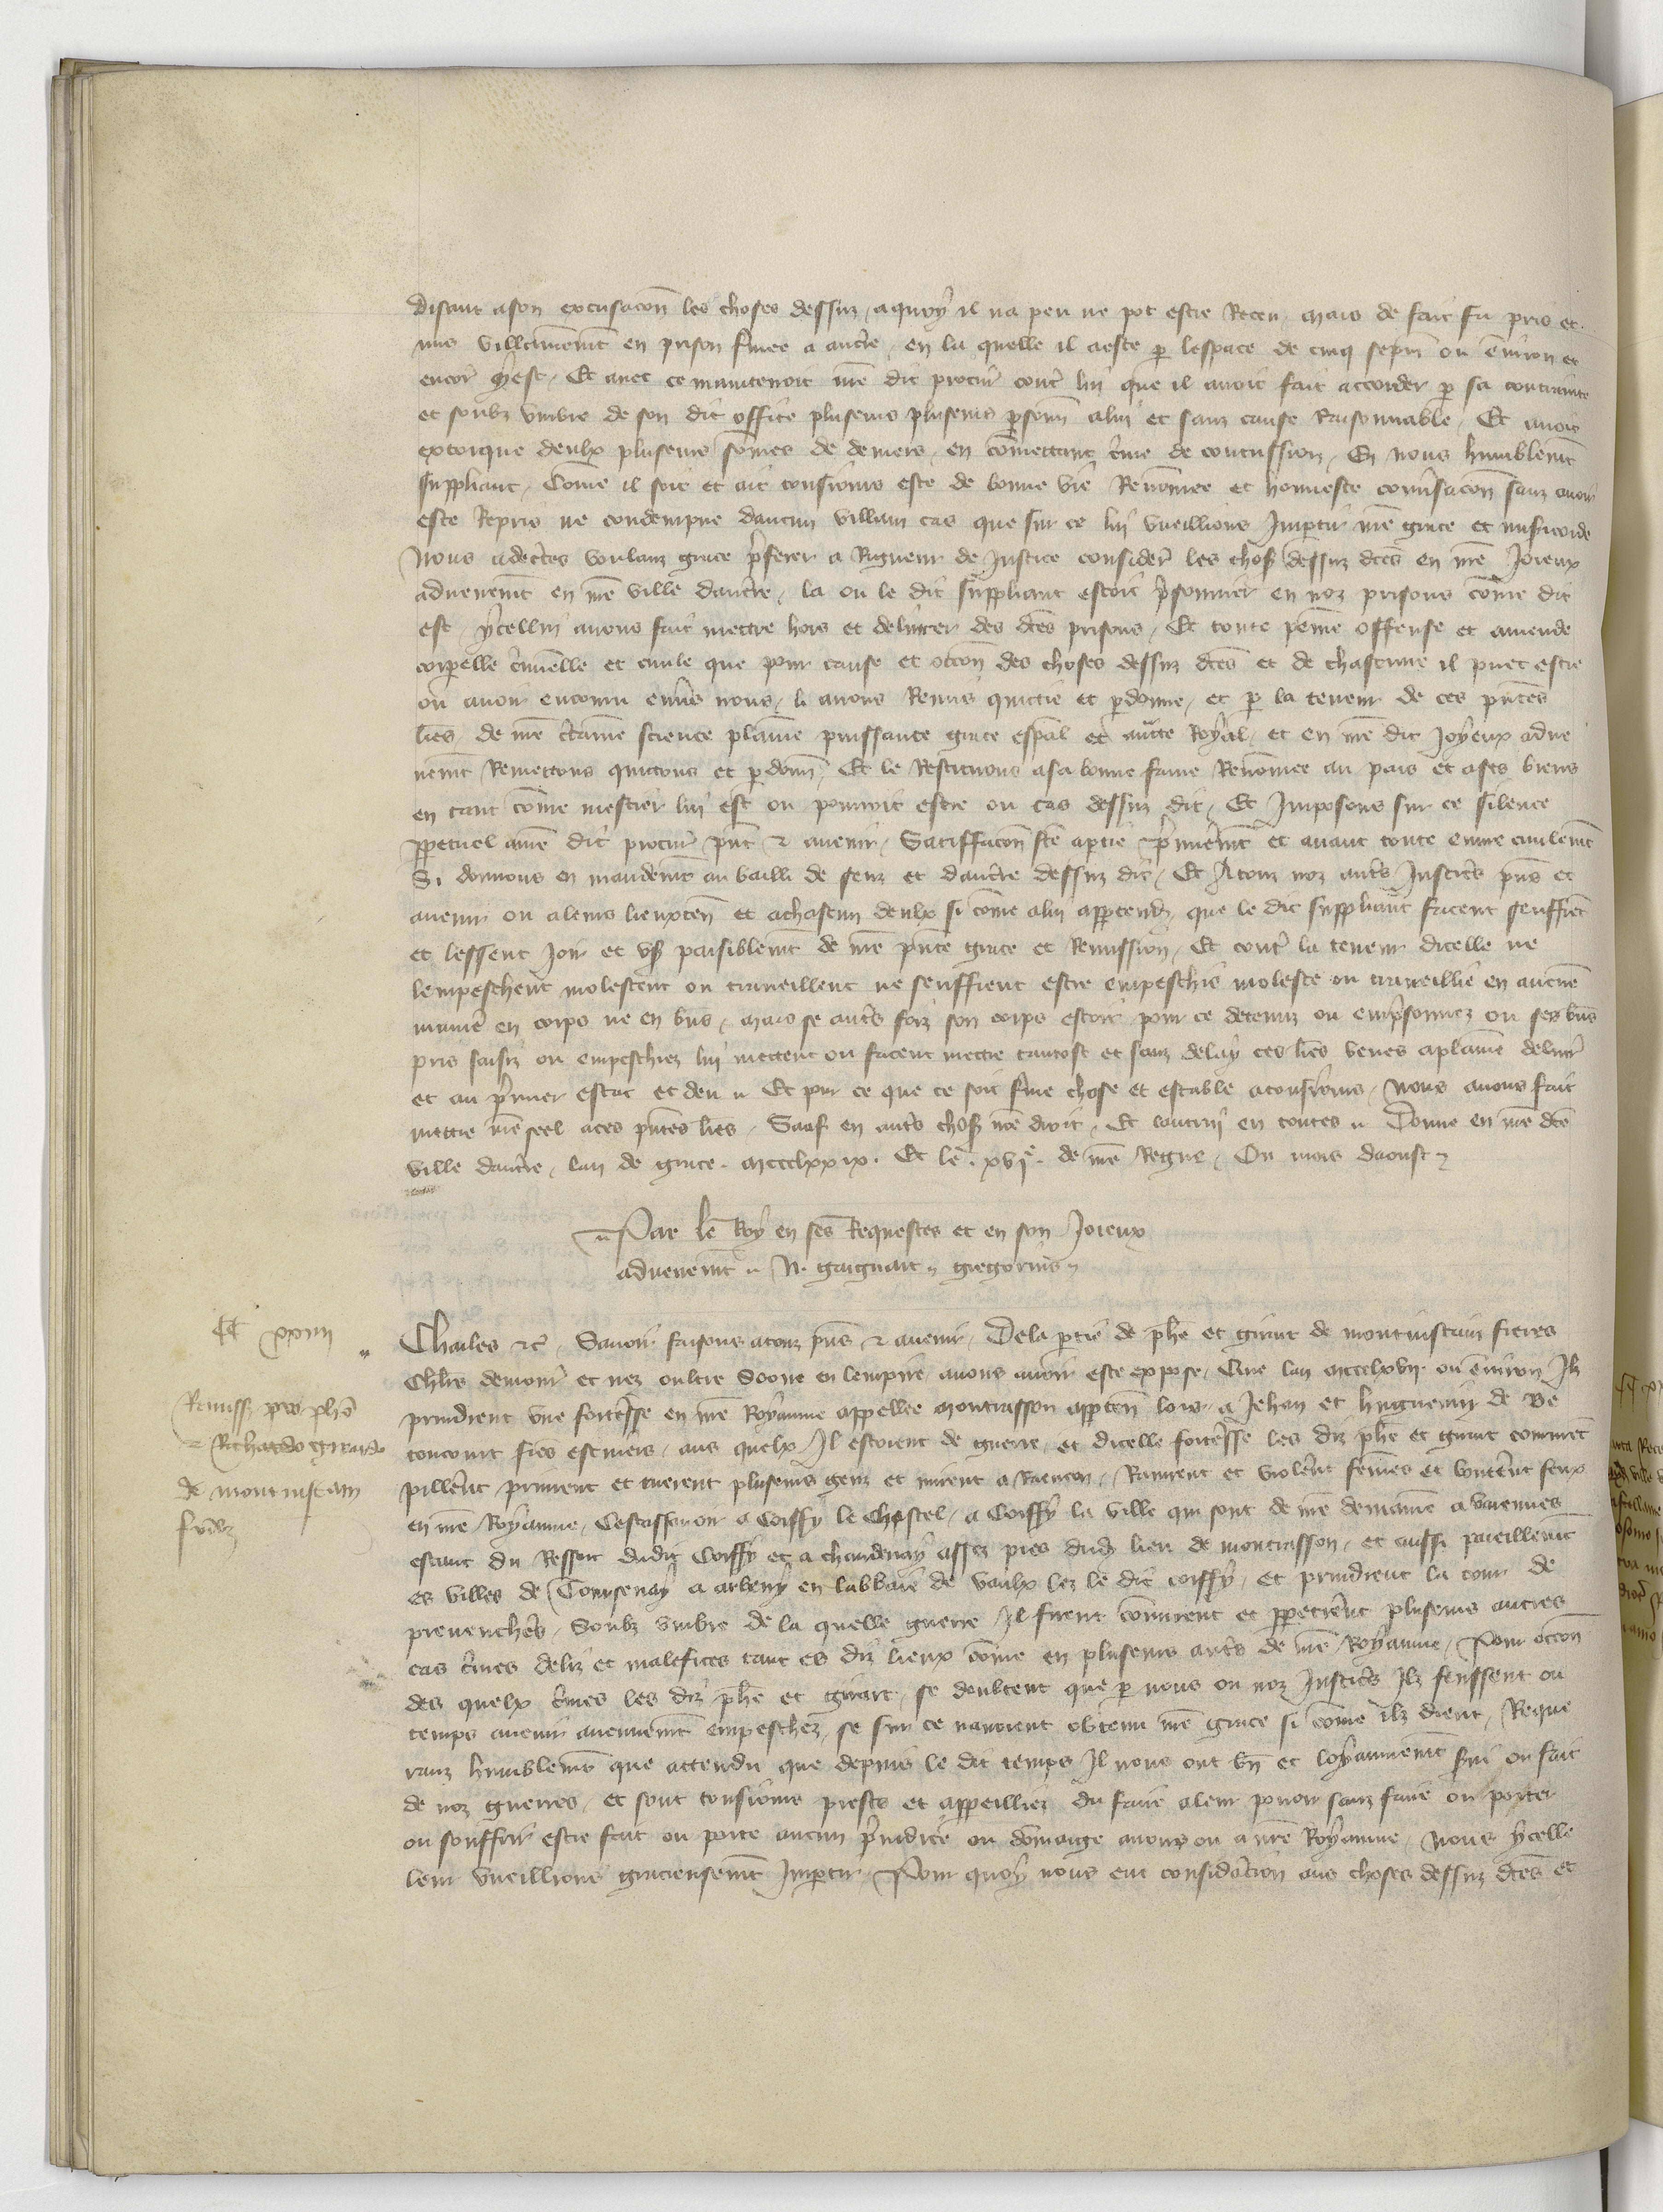 disant a son excusacon les choses dessuz, a quoy il na peu ne pot estre Receu, mais de fait fu pris et
mis villainnemt en prison fmee a aucre, en la quelle il a este p lespace de cinq sepm ou environ et
encor y est, Et avec ce maintenoit nre dit procur contr lui que il avoit fait accorder p sa contrainte
et soubz umbre de son dit office pluseurs pluseurs psonn a lui et sanz cause Raisonnable, Et avoit
extorque deulx pluseurs somes de deniers, en comettant crime de concussion, En nous humblemt
suppliant, Come il soit et ait tousiours este de bonne vie Renomee et honneste conversacon sanz avoir
este Repris ne condempne daucun villain cas que sur ce lui vueillions Impartir nre grace et misericorde
Nous adectes voulanz grace preferer a Rigueur de Justice consider les chos dessuz dces en nre Joieux
advenemt en nre ville daucre, la ou le dit suppliant estoit prisonnier en noz prisons come dit
est, ycellui avons fait mettre hors et delivrer des dces prisons, Et toute peine offense et amende
corpelle criminelle et civile que pour cause et occon des choses dessuz dces et de chascune il puet estre
ou avoir encouru envers nous, li avons Remis quictie et pdonne, et p la teneur de ces pntes
lres, de nre ctaine science plaine puissance grace espal et auctte Royal, et en nre dit Joyeux adve
nemt Remettons quictons et pdonn, Et le Restituons a sa bonne fame Renomee au pais et a ses biens
en tant come mestier lui est ou pourroit estre ou cas dessuz dit, Et Imposons sur ce silence
ppetuel a nre dit procur pnt et avenir, Satiffacon fce a ptie premieremt et avant toute euvre civilemt
Si donnons en mandemt au bailli de senz et daucre dessuz dit, Et A touz noz autrs Justiciers pns et
avenir ou a leurs lieuxten et a chascun deulx si come a lui apptendr, que le dit suppliant facent seuffret
et lessent Joir et us paisiblemt de nre pnte grace et Remission, Et contr la teneur dicelle ne
lempeschent molestent ou traveillent ne seuffrent estre empeschie moleste ou traveillie en aucune
maniere en corps ne en biens, mais se autrs foiz son corps estoit pour ce detenuz ou emprisonnez ou ses biens
pris saisiz ou empeschiez lui mettent ou facent mettre tantost et sanz delay ces lres veues a plaine delivr
et au premier estat et deu Et pour ce que ce soit fme chose et estable a tousiours, Nous avons fait
mettre nre seel a ces pntes lres, Sauf en autrs chos nre droit, Et lautrui en toutes Donne en nre dce
ville daucre, lan de grace mccclxxix. Et le xvie de nre Regne, Ou mois daoust
Par le Roy en ses Requestes et en son Joieux
advenemt N. gaignart gregorius
CC xxiiii
Charles etc. Savoir faisons a touz pns et avenir, De la ptie de phe et girart de montiustain freres
Remiss pro pho
et Richardo girardo
de montiustain
fribz
Chlrs demour et nez oultre Soone en lempire avons avoir este expose, Que lan mccclxvii ou environ Ilz
prindrent une forteresse en nre Royaume appellee montrasson apptten lors a Jehan et huguenin de Be
toncourt fres escuiers, aus quelx Il estoient de guerre, et dicelle forteresse les diz phe et girart coururet
pillerent prinrent et tuerent pluseurs genz et mirent a Raencon, Ravirent et violerent femes et bouterent feux
en nre Royaume, Cestassavoir a Coiffy le Chastel, a Coiffy la ville qui sont de nre demaine a varennes
estant du Ressort dudit Coiffy et a chaudenay assez pres dudz lieu de montrasson, et aussi pareillemt
es villes de Tonrsenay a arbeny en labbaie de vaulx lez le dit coiffy, et prindrent la tour de
prevenchers, Soubz umbre de la quelle guerre Il firent comirent et ppetrerent pluseurs autres
cas crimes deliz et malefices tant es diz lieux come en pluseurs autrs de nre Royaume, Pour occon
des quelx crimes les diz phe et girart, se doubtent que p nous ou noz Justiciers Ilz feussent ou
temps avenir aucunemt empeschez, se sur ce navoient obtenu nre grace si come ilz dient, Reque
ranz humblemt que attendu que depuis le dit temps Il nous ont bn et loyaument servi ou fait
de noz guerres, et sont tousiours prests et appeilliez du faire a leur povoir sanz faire ou porter
ou souffrir estre fait ou porte aucun prejudice ou domaige a nous ou a nre Royaume, Nous ycelle
leur vueillions gracieusemt Impartir, Pour quoy nous eue consideracion aus choses dessuz dces et